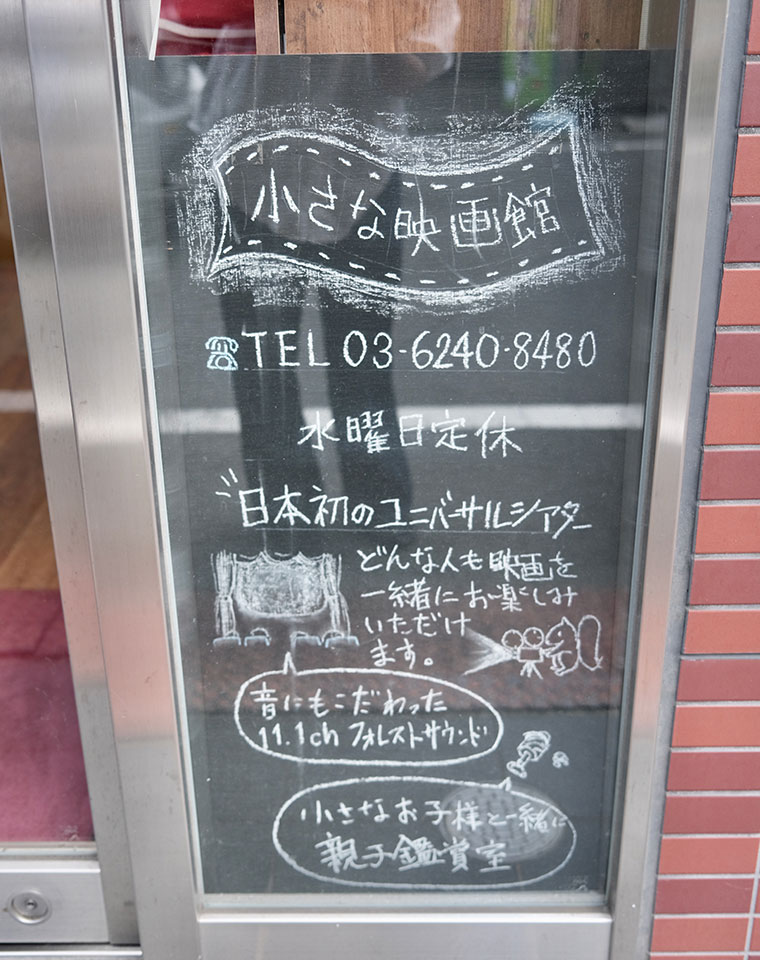 小さな映画館
☎TEL 03-6240-8480
水曜日定休
日本初のユニバーサルシアター
どんな人も映画を
一緒にお楽しみ
いただけ
ます。
音にもこだわった
11.1ch フォレストサウンド
小さなお子様と一緒に
親子鑑賞室